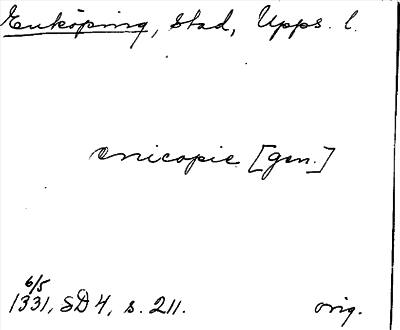 Enköping, Stad, Upps. l.
enicopie [gen.]
6/5
1331, SD 4, s. 211. orig.